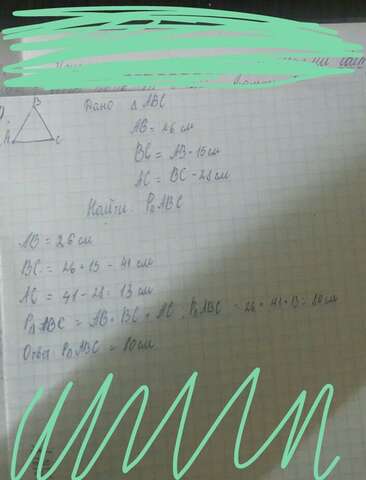 B
Дано △ ABC
A C
AB = 26 см
BC = AB - 15 см
AC = BC - 28 см
Найти: P△ABC
AB = 26 см
BC = 26 + 15 = 41 см
AC = 41 - 28 = 13 см
P△ABC = AB + BC + AC, P△ABC = 26 + 41 + 13 = 80 см
Ответ P△ABC = 80 см